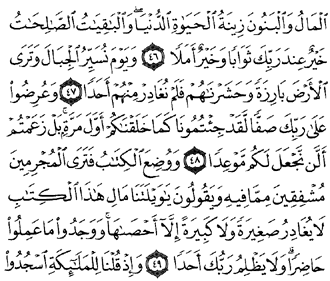 الْمَالُ وَالْبَنُونَ زِينَةُ الْحَيَوٰةِ الدُّنْيَا ۖ وَالْبَٰقِيَٰتُ الصَّٰلِحَٰتُ
خَيْرٌ عِندَ رَبِّكَ ثَوَابًا وَخَيْرٌ أَمَلًا ﴿٤٦﴾ وَيَوْمَ نُسَيِّرُ الْجِبَالَ وَتَرَى
الْأَرْضَ بَارِزَةً وَحَشَرْنَٰهُمْ فَلَمْ نُغَادِرْ مِنْهُمْ أَحَدًا ﴿٤٧﴾ وَعُرِضُوا
عَلَىٰ رَبِّكَ صَفًّا لَّقَدْ جِئْتُمُونَا كَمَا خَلَقْنَٰكُمْ أَوَّلَ مَرَّةٍۭ ۚ بَلْ زَعَمْتُمْ
أَلَّن نَّجْعَلَ لَكُم مَّوْعِدًا ﴿٤٨﴾ وَوُضِعَ الْكِتَٰبُ فَتَرَى الْمُجْرِمِينَ
مُشْفِقِينَ مِمَّا فِيهِ وَيَقُولُونَ يَٰوَيْلَتَنَا مَالِ هَٰذَا الْكِتَٰبِ
لَا يُغَادِرُ صَغِيرَةً وَلَا كَبِيرَةً إِلَّا أَحْصَىٰهَا ۚ وَوَجَدُوا مَا عَمِلُوا
حَاضِرًا ۗ وَلَا يَظْلِمُ رَبُّكَ أَحَدًا ﴿٤٩﴾ وَإِذْ قُلْنَا لِلْمَلَٰٓئِكَةِ اسْجُدُوا